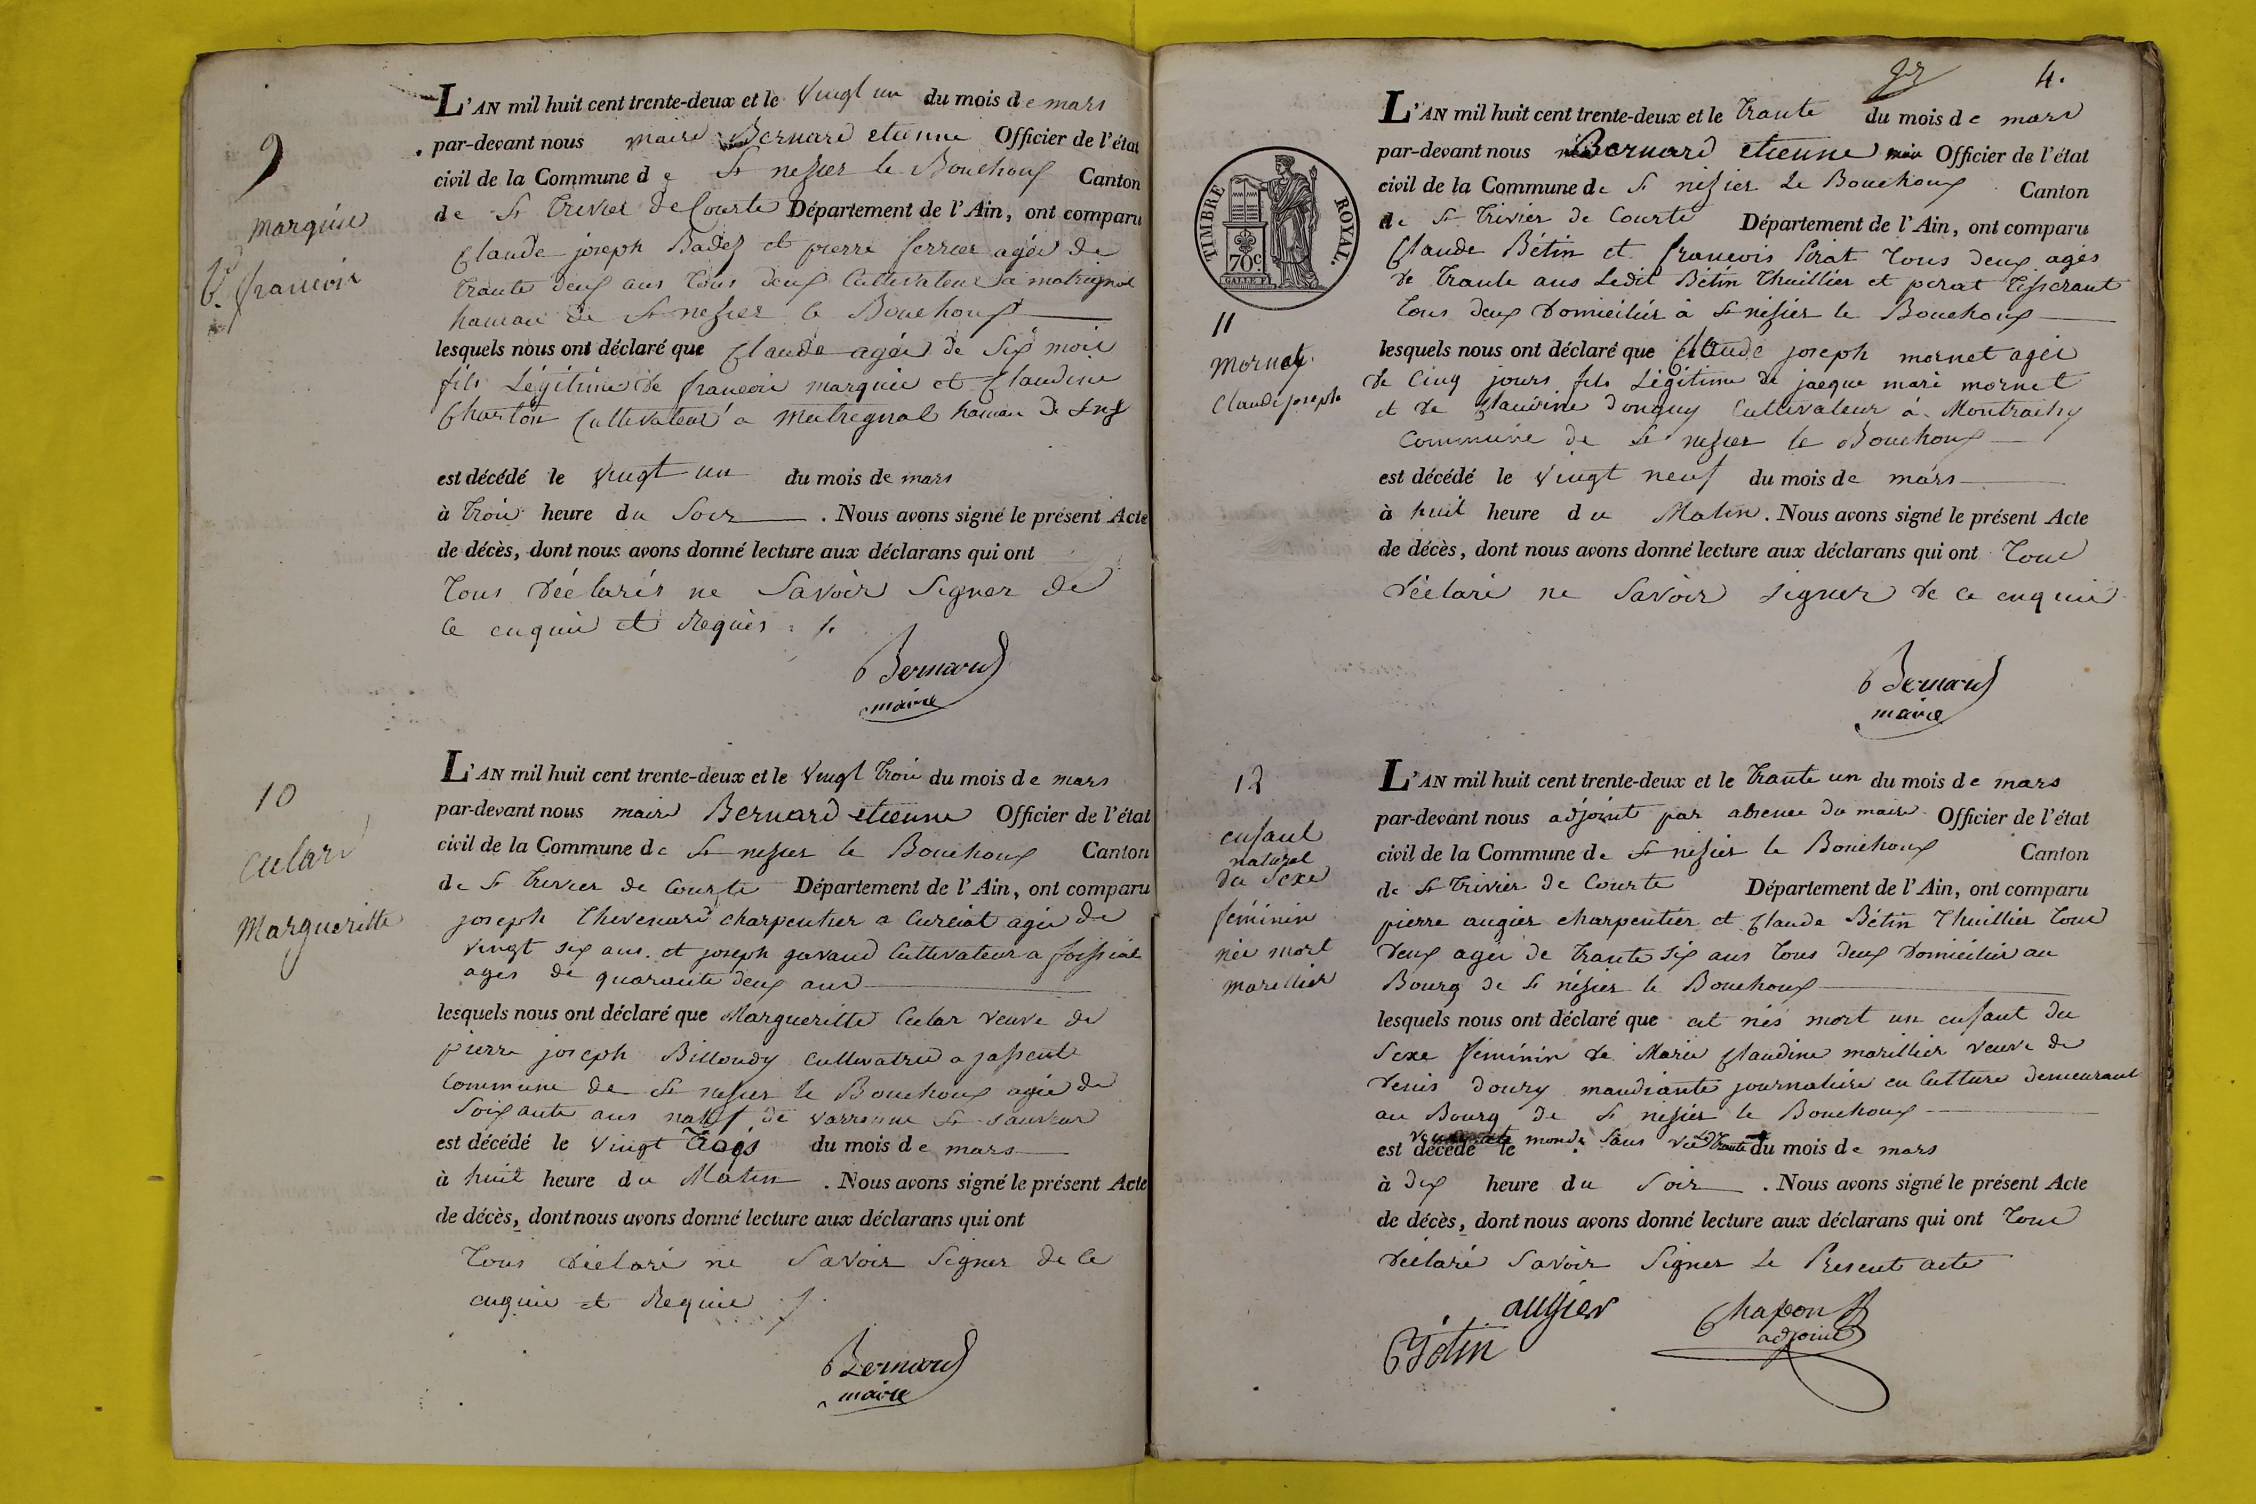 9
marquis
françois
L'AN mil huit cent trente-deux et le Vingt un du mois de mars
par-devant nous maire Bernard etienne Officier de l'état
civil de la Commune de St nesier le Bouchoux Canton
de St Trevier de Courte Département de l'Ain, ont comparu
Claude joseph Badez et pierre ferrier agés de
trante deux ans tous deux Cultivateur a matregnal
hamau de St nesier le Bouchoux
lesquels nous ont déclaré que Claude agée de Six mois
fils Légitime de françois marquis et Claudine
Charton Cultivateur a matregnal hamau de
est décédé le vingt un du mois de mars
à trois heure du Soir. Nous avons signé le présent Acte
de décès, dont nous avons donné lecture aux déclarans qui ont
tous déclarés ne Savoir Signer de
ce enquis et Requis
Bernard
maire
10
Culard
Margueritte
L'AN mil huit cent trente-deux et le Vingt trois du mois de mars
par-devant nous maire Bernard etienne Officier de l'état
civil de la Commune de St nesier le Bouchoux Canton
de St Trevier de Courte Département de l'Ain, ont comparu
joseph thevenard charpentier a Curciat agée de
vingt six ans. et joseph gavand Cultivateur a foissiat
ages de quarante deux ans
lesquels nous ont déclaré que Margueritte Cular veuve de
pierre joseph Billoudy Cultivatrice a
Commune de St nesier le Bouchoux agée de
Soixante ans natif de varrenne St Sauveur
est décédé le Vingt trois du mois de mars
à huit heure du Matin. Nous avons signé le présent Acte
de décès, dont nous avons donné lecture aux déclarans qui ont
tous déclaré ne Savoir Signer de ce
enquis et Requis
Bernard
maire
4.
TIMBRE ROYAL.
70c
L'AN mil huit cent trente-deux et le trante du mois de mars
par-devant nous Bernard etienne Officier de l'état
civil de la Commune de St nesier Le Bouchoux Canton
de St Trivier de Courte Département de l'Ain, ont comparu
Claude Bétin et françois Perat tous deux agés
de trante ans Ledit Bétin thuillier et perat tisserant
tous deux Domiciliés à St nesier le Bouchoux
11
Mornet
Claude joseph
lesquels nous ont déclaré que Claude joseph mornet agée
de Cinq jours fils Légitime de jacque marie mornet
et de Claudine donguy Cultivateur á
Commune de St nesier le Bouchoux
est décédé le Vingt neuf du mois de mars
à huit heure du Matin. Nous avons signé le présent Acte
de décès, dont nous avons donné lecture aux déclarans qui ont tous
déclaré ne Savoir signer de ce enquis
Bernard
maire
12
enfant
naturel
du Sexe
féminin
née mort
marillier
L'AN mil huit cent trente-deux et le trante un du mois de mars
par-devant nous adjoint par absence du maire Officier de l'état
civil de la Commune de St nésier le Bouchoux Canton
de St Trivier de Courte Département de l'Ain, ont comparu
pierre augier charpentier et Claude Bétin thuillier tous
deux agés de trante six ans tous deux Domicilié au
Bourg de St nésier le Bouchoux
lesquels nous ont déclaré que est nés mort un enfant du
Sexe féminin de Marie Claudine marillier veuve de
denis doury mandiante journaliere en Culture demeurant
au Bourg de St nesier le Bouchoux
est décédé le monde Sans vie trante du mois de mars
à dix heure du Soir. Nous avons signé le présent Acte
de décès, dont nous avons donné lecture aux déclarans qui ont tous
déclaré Savoir Signer Le Present acte
augier
Bétin
Chapon
adjoint